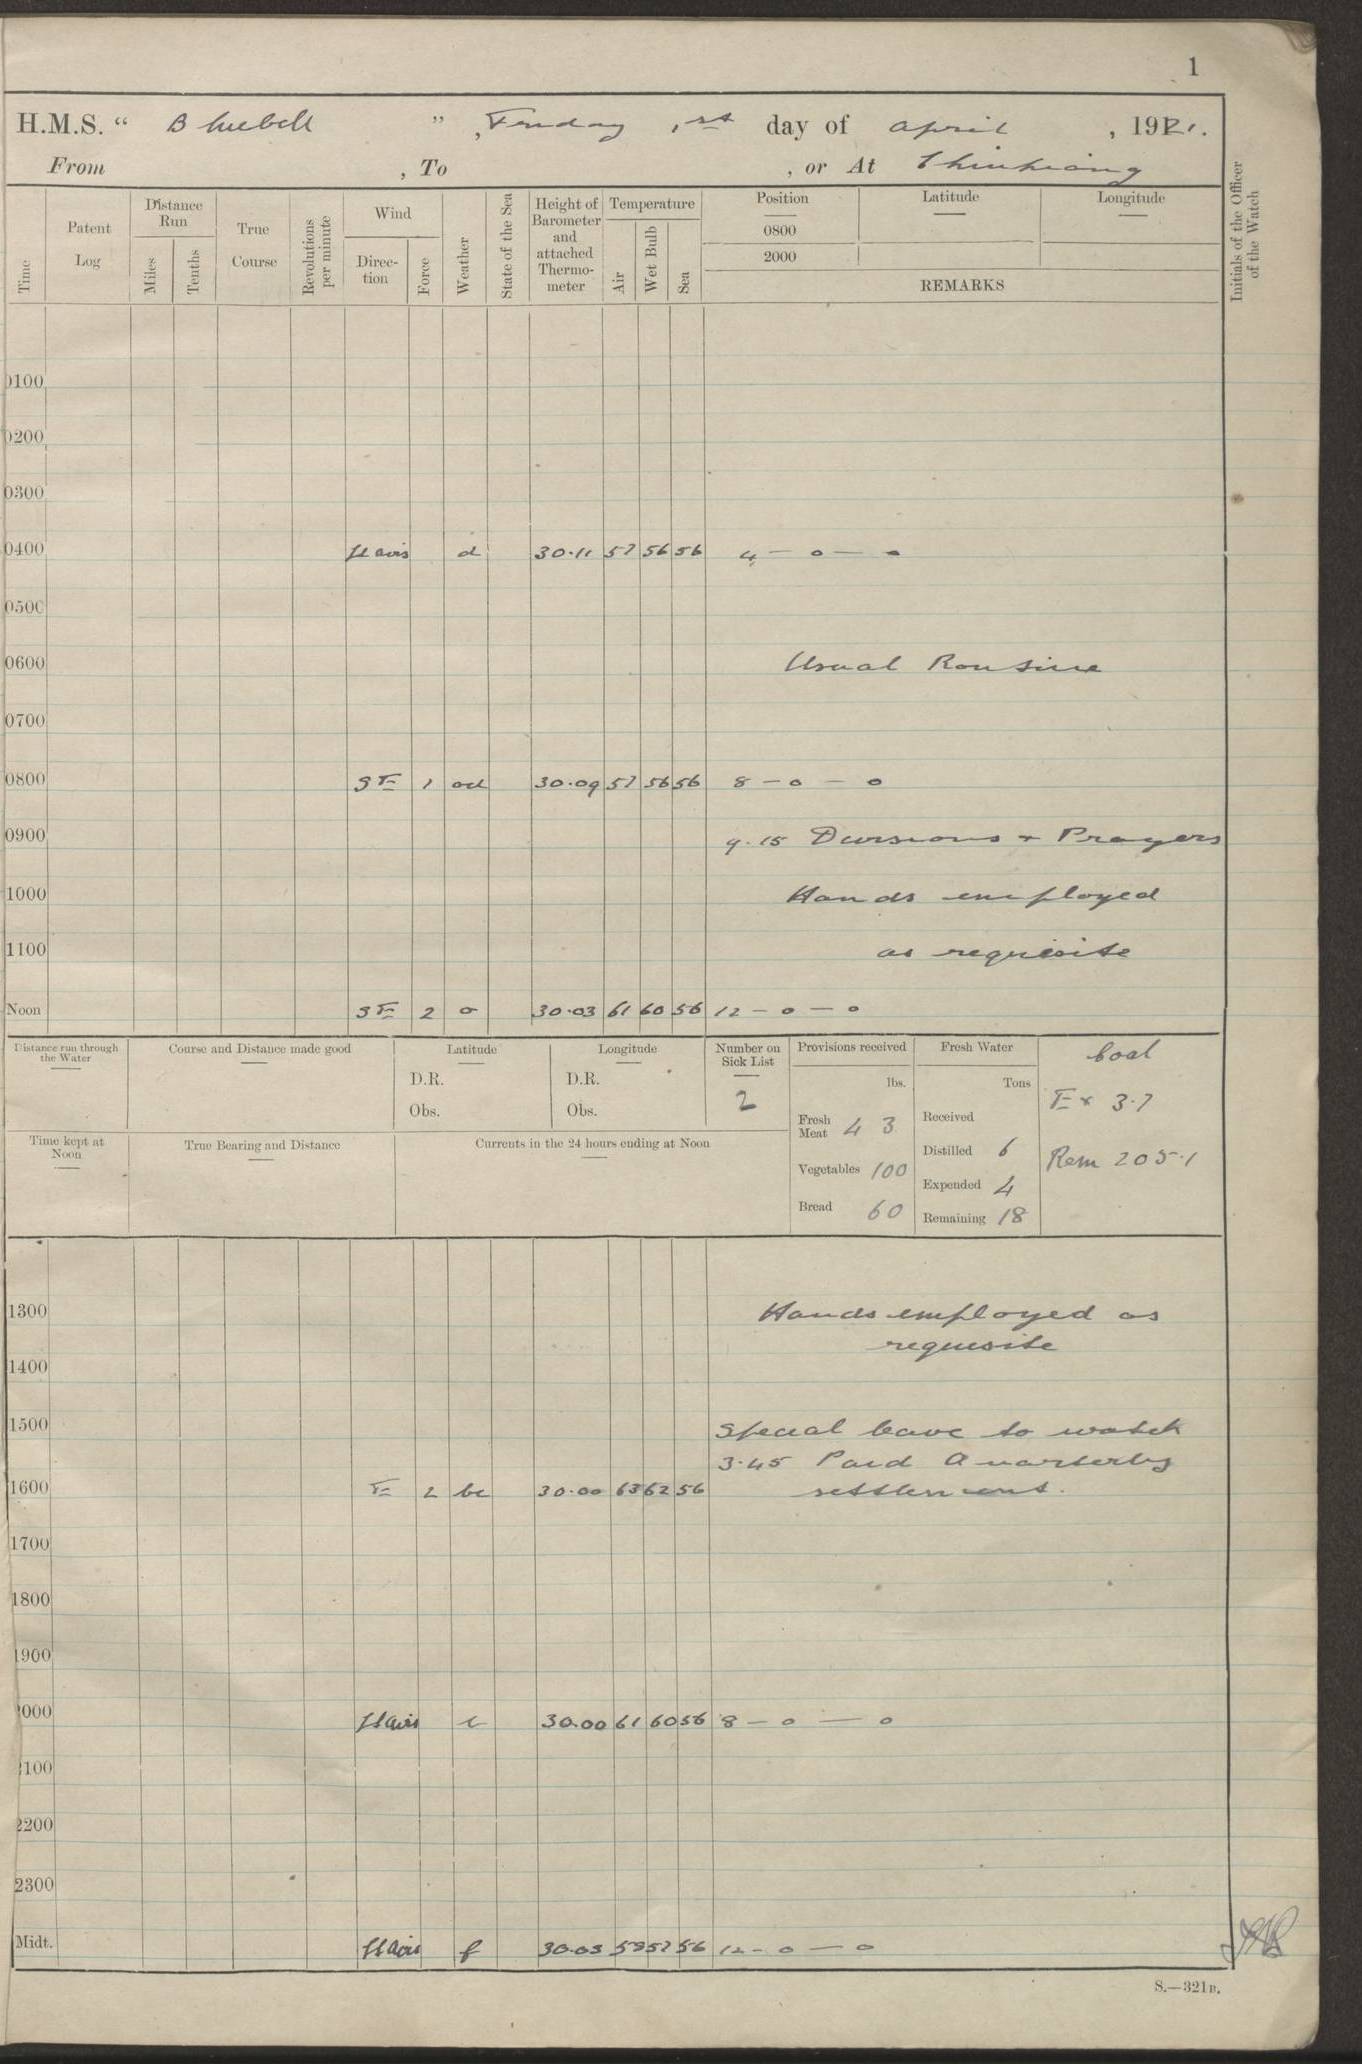 1
H.M.S. " Bluebell ", Friday, 1st day of April, 1921.
From , To , or At Chinkiang
Time
Patent Log
Distance Run
Miles
Tenths
True Course
Revolutions per minute
Wind
Direction
Force
Weather
State of the Sea
Height of Barometer and attached Thermometer
Temperature
Air
Wet Bulb
Sea
Position
0800
2000
Latitude
Longitude
REMARKS
Initials of the Officer of the Watch
0100
0200
0300
0400 d 30.11 57 56 56 4 — o — o
0500
0600 Usual Routine
0700
0800 SE 1 od 30.09 57 56 56 8 — o — o
0900 9.15 Divisions + Prayers
1000 Hands employed
1100 as requisite
Noon SE 2 o 30.03 61 60 56 12 — o — o
Distance run through the Water
Course and Distance made good
Latitude
D.R.
Obs.
Longitude
D.R.
Obs.
Number on Sick List
2
Provisions received
lbs.
Fresh Meat 43
Vegetables 100
Bread 60
Fresh Water
Tons
Received
Distilled 6
Expended 4
Remaining 18
Coal
Ex 3.7
Rem 205.1
Time kept at Noon
True Bearing and Distance
Currents in the 24 hours ending at Noon
1300 Hands employed as
requisite
1400
1500 Special leave to watch
3.45 Paid Quarterly
1600 E 2 bc 30.00 63 62 56 settlement.
1700
1800
1900
2000 c 30.00 61 60 56 8 — o — o
2100
2200
2300
Midt. f 30.03 56 12 — o — o
S.—321B.